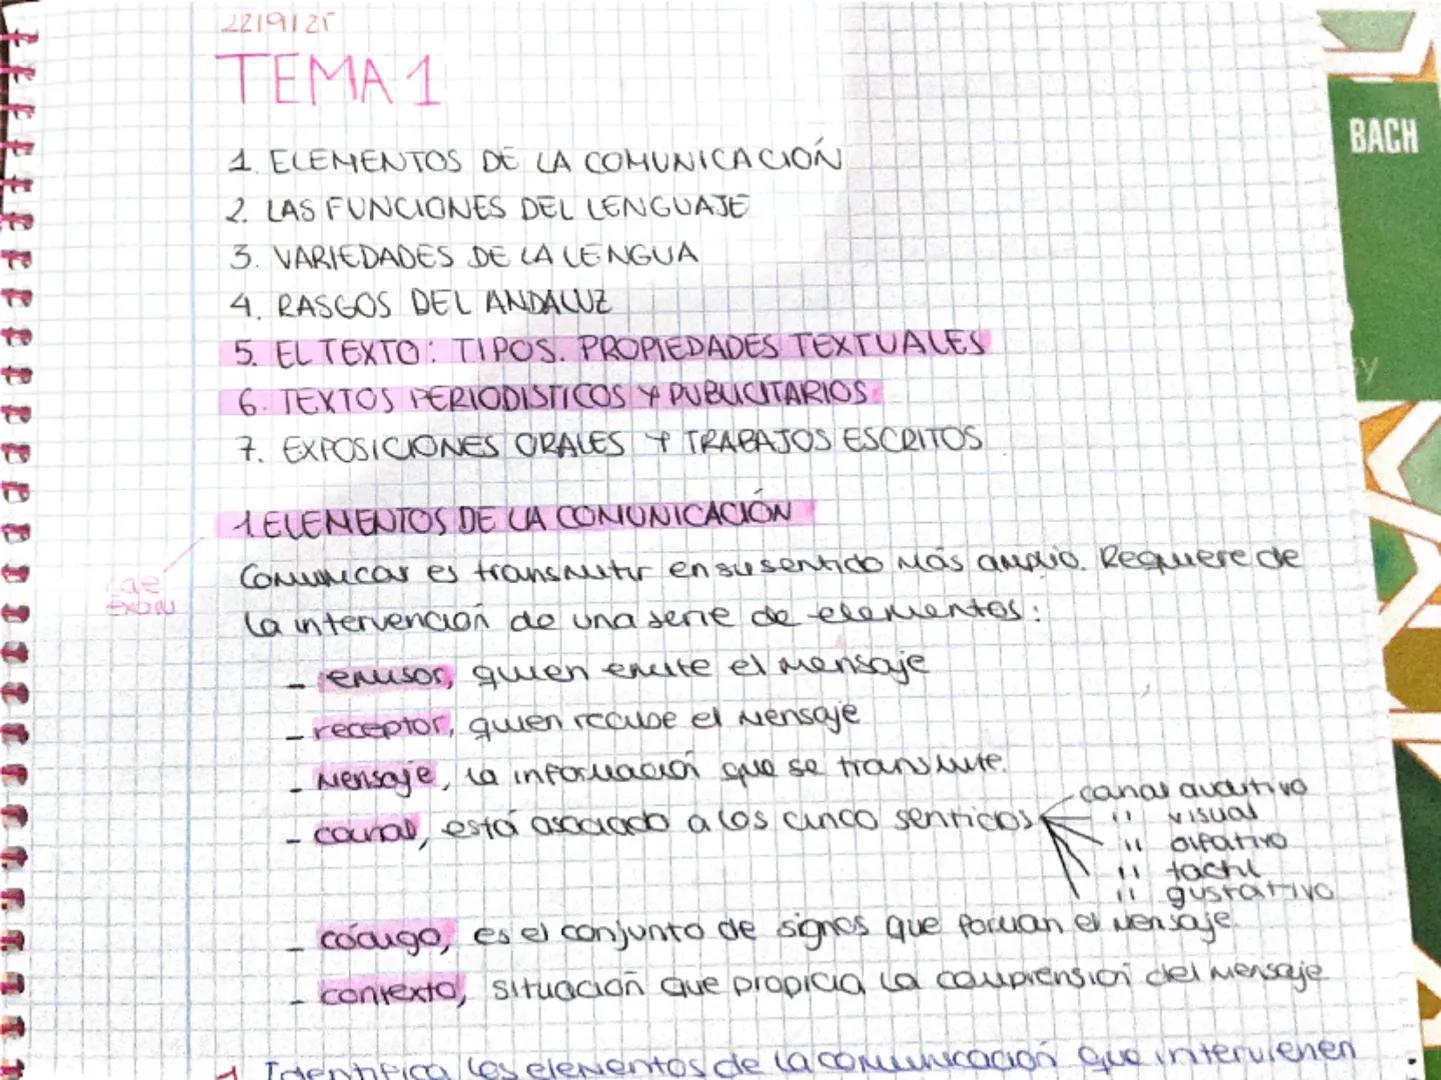 22/9/25
TEMA 1
1. ELEMENTOS DE LA COMUNICACIÓN
2. LAS FUNCIONES DEL LENGUAJE
3. VARIEDADES DE LA LENGUA
4. RASGOS DEL ANDALUZ
5. EL TEXTO: TIPOS. PROPIEDADES TEXTUALES
6. TEXTOS PERIODISTICOS Y PUBLICITARIOS
7. EXPOSICIONES ORALES Y TRABAJOS ESCRITOS
1. ELEMENTOS DE LA COMUNICACIÓN
cae
Comunicar es transmitir en su sentido más amplio. Requiere de
la intervención de una serie de elementos:
- emisor, quien emite el mensaje
- receptor, quien recibe el mensaje
- mensaje, la información que se transmite.
- canal, está asociado a los cinco sentidos
canal auditivo
" visual
" olfativo
" tactil
" gustativo
- código, es el conjunto de signos que forman el mensaje.
- contexto, situación que propicia la comprensión del mensaje
1 Identifica los elementos de la comunicación que intervienen
BACH